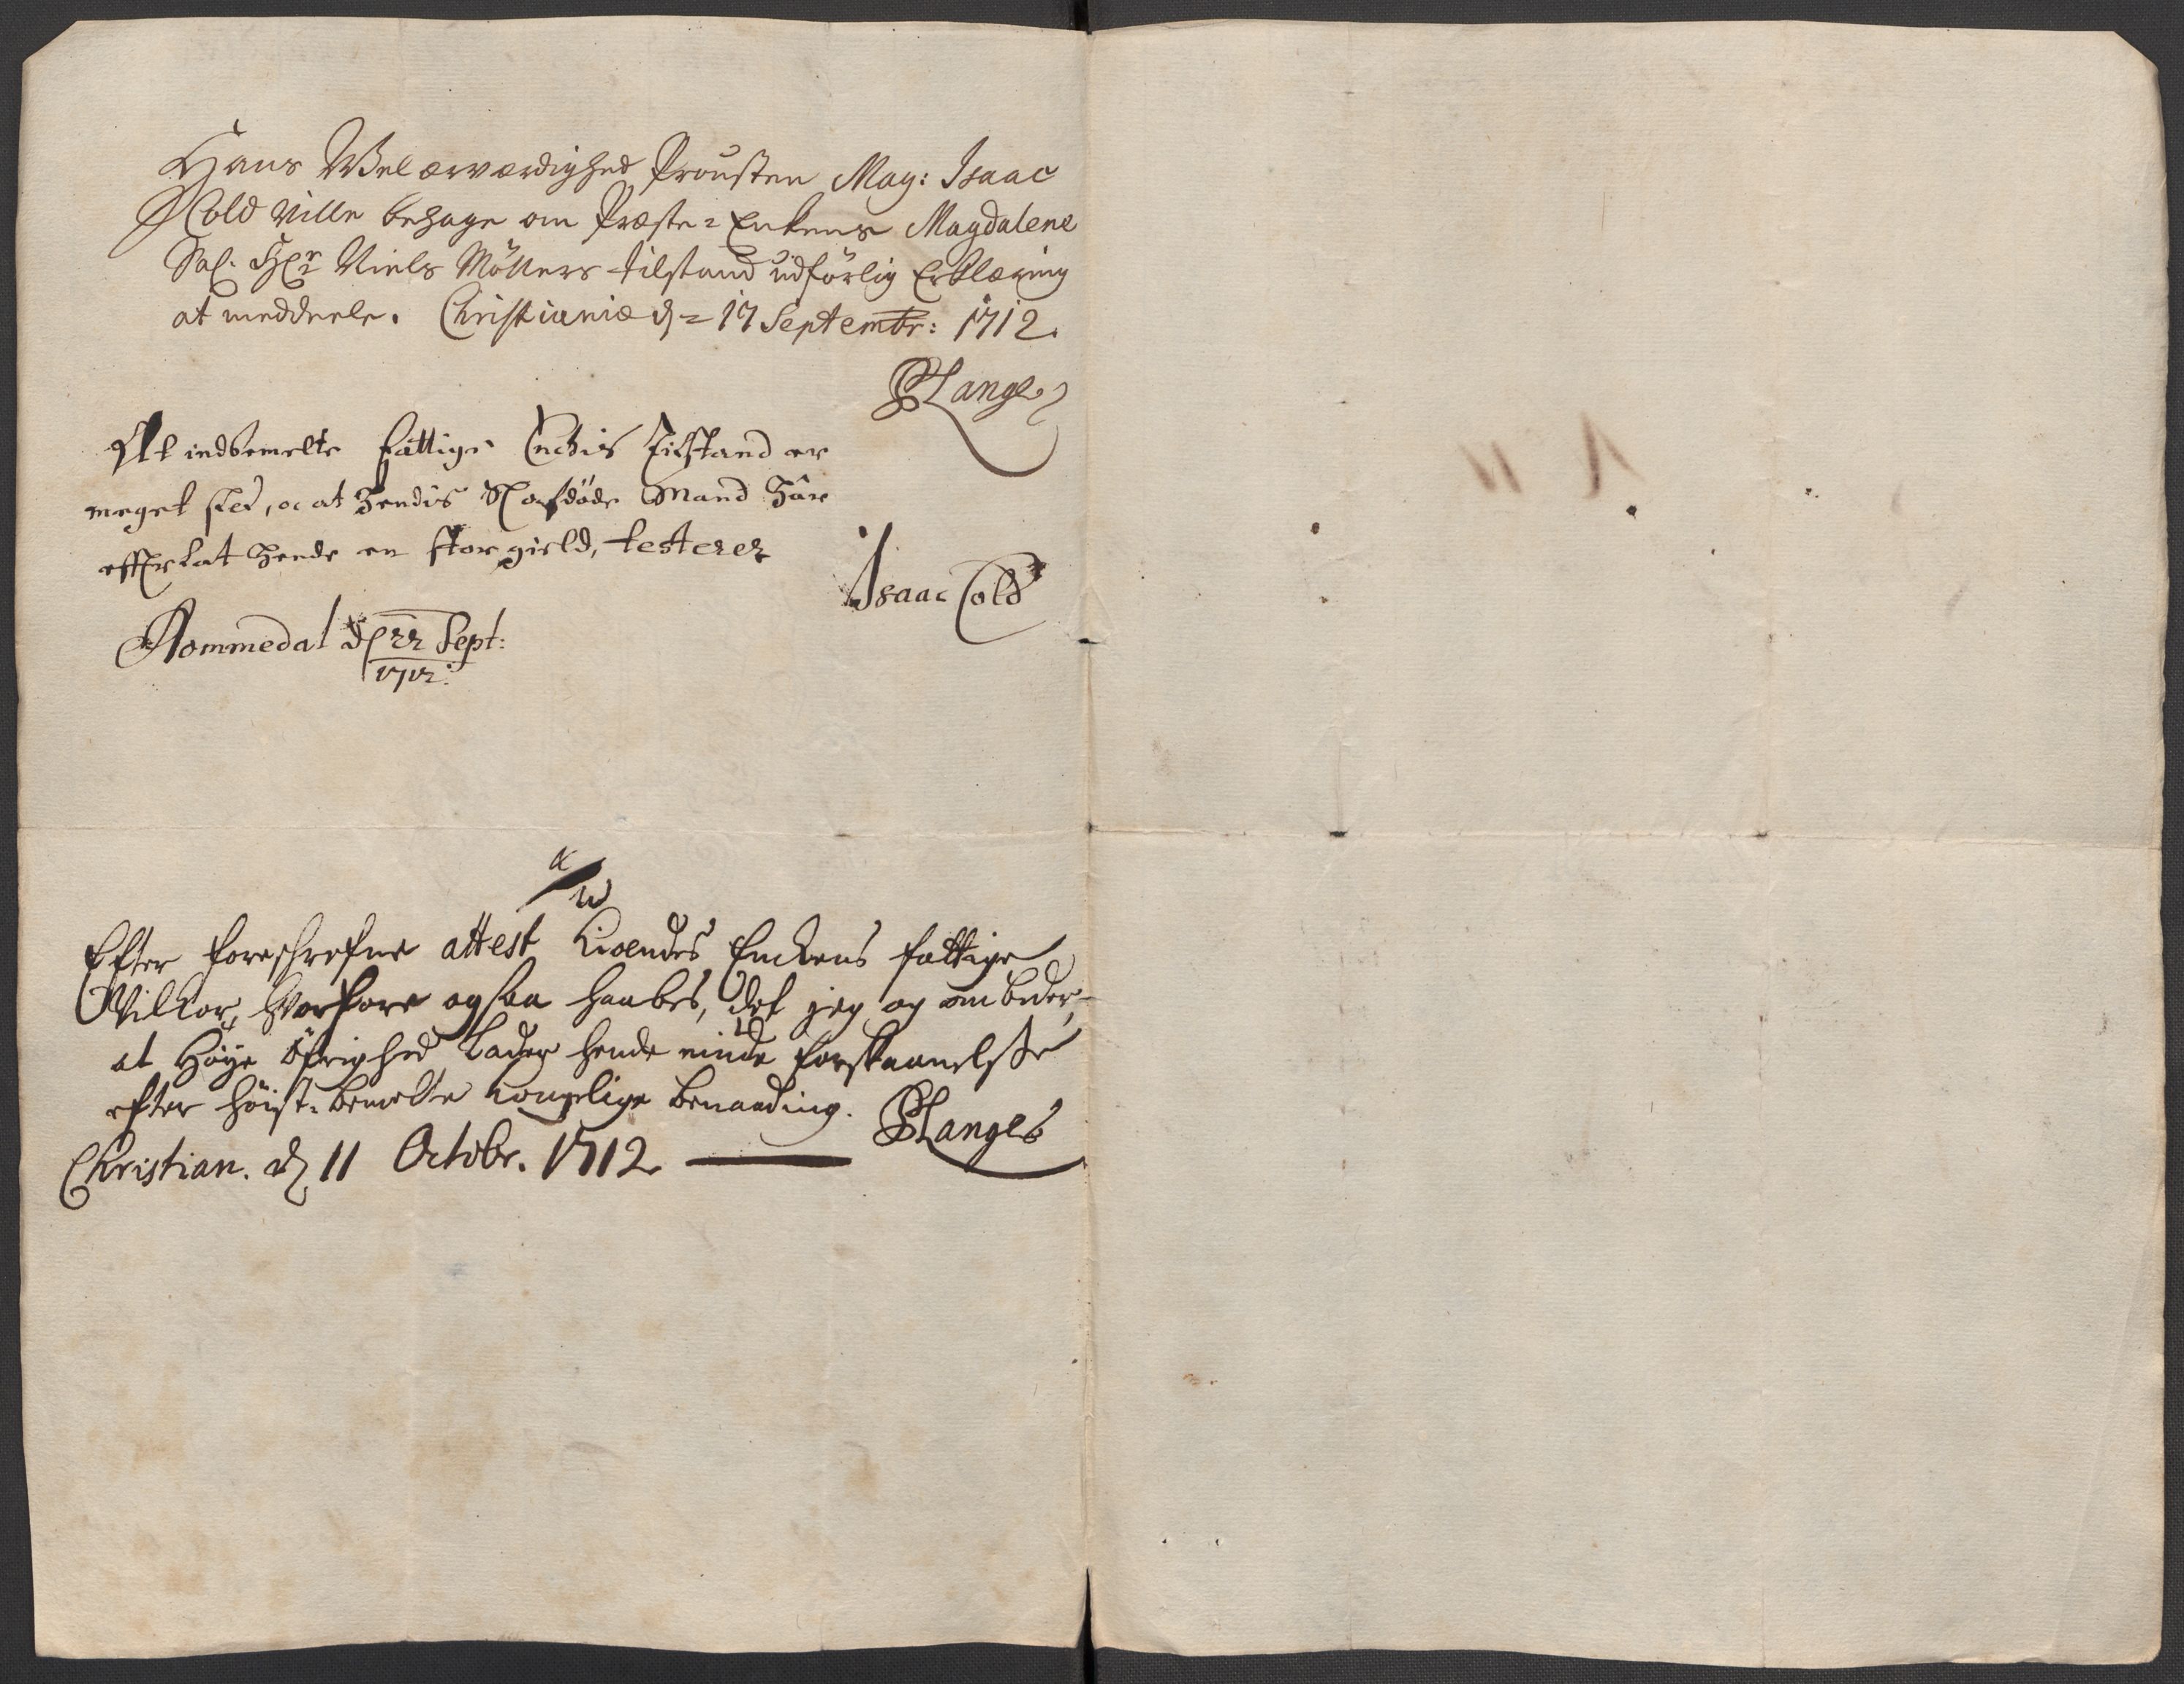 Hans Welærværdighed Prousten Mag: Isaac
Cold ville behage om Præste-Enkens Magdalene
Sal. Hr Niels Möllers tilstand udförlig Erklæring
at meddeele. Christianiæ d = 17 Septembr: 1712.
PLange
At indbemelte fattige Enckis Tilstand er
meget slet, oc at hendis S. afdöde Mand har
effterlat hende en stor gield, testerer
Isaac Cold
Rommedal d 22 Sept:
1712.
Efter foreschrefne attest kiændes Enckens fattige
Vilkor, hvorfore ogsaa haabes, det jeg og ombeder,
at Höye Öfrighed lader hende niude forskaanelsse
efter höist-bemelte kongelige benaading.
PLange
Christian. d 11 Octobr. 1712